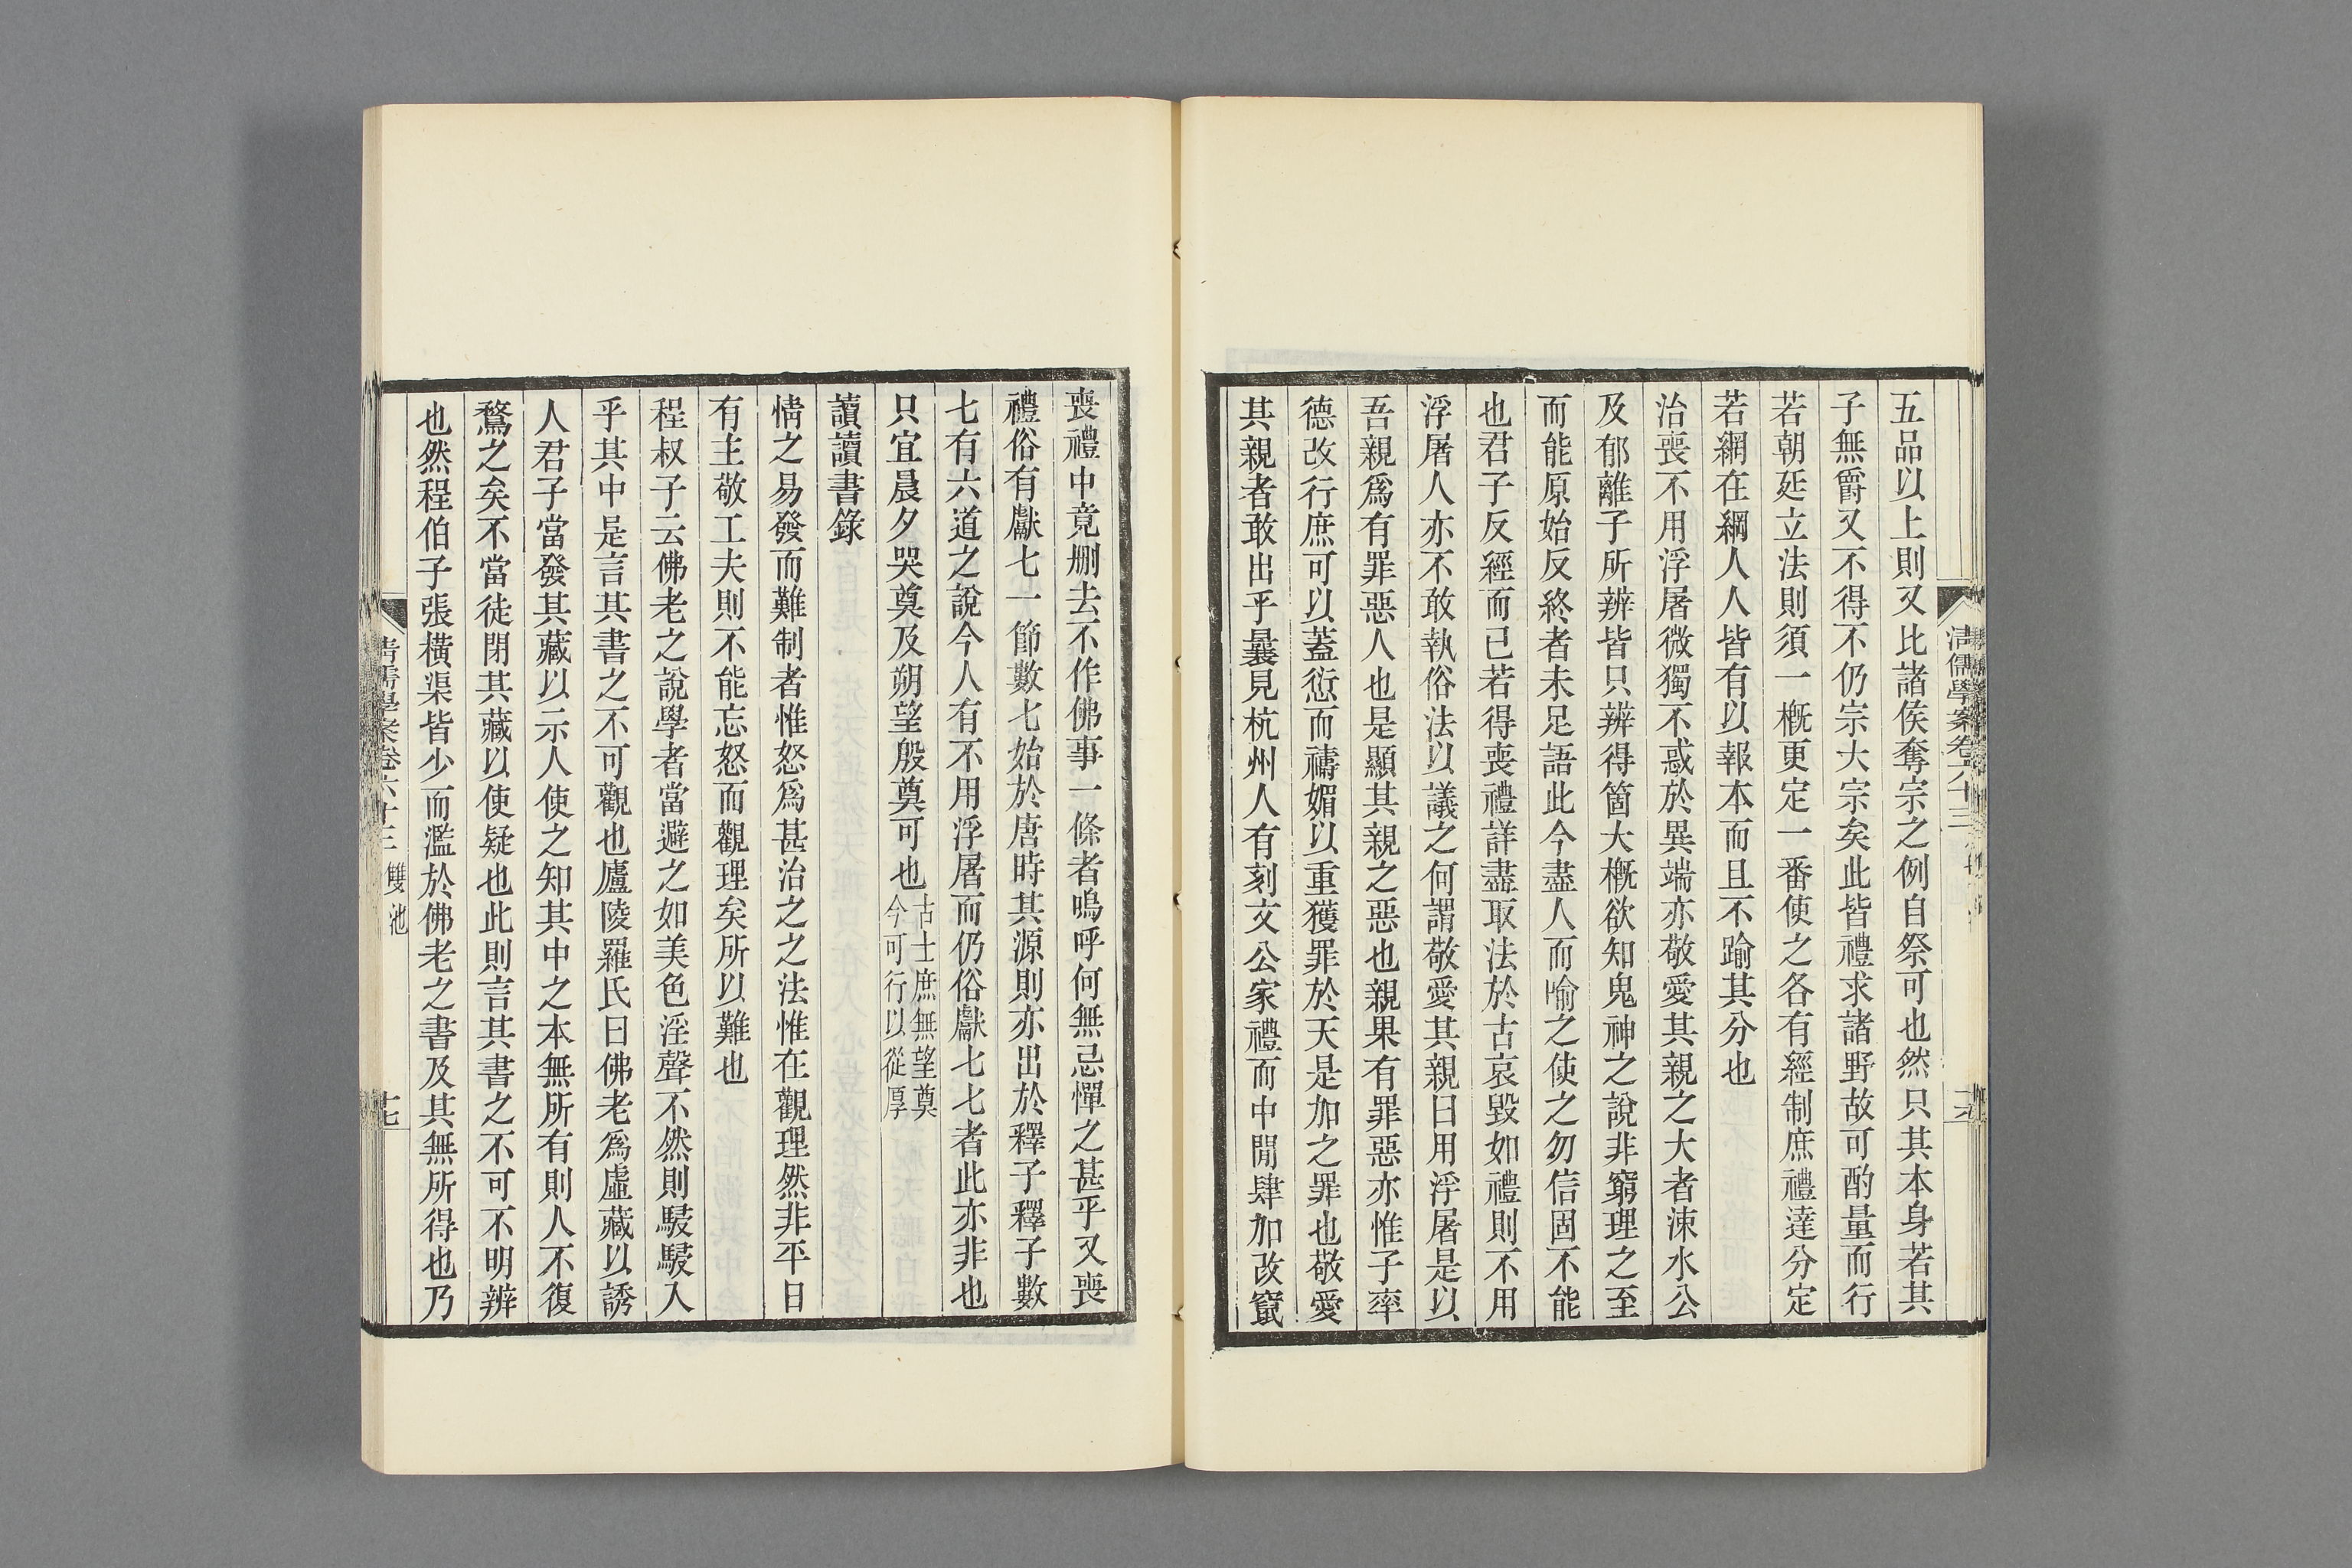 清儒學案卷六十三
五品以上則又比諸侯奪宗之例自祭可也然只其本身若其
子無爵又不得不仍宗大宗矣此皆禮求諸野故可酌量而行
若朝廷立法則須一概更定一番使之各有經制庶禮達分定
若網在綱人人皆有以報本而且不踰其分也
治喪不用浮屠微獨不惑於異端亦敬愛其親之大者涑水公
及郁離子所辨皆只辨得箇大概欲知鬼神之說非窮理之至
而能原始反終者未足語此今盡人而喻之使之勿信固不能
也君子反經而已若得喪禮詳盡取法於古哀毀如禮則不用
浮屠人亦不敢執俗法以議之何謂敬愛其親曰用浮屠是以
吾親爲有罪惡人也是顯其親之惡也親果有罪惡亦惟子率
德改行庶可以蓋愆而禱媚以重獲罪於天是加之罪也敬愛
其親者敢出乎曩見杭州人有刻文公家禮而中閒肆加改竄
喪禮中竟刪去不作佛事一條者嗚呼何無忌憚之甚乎又喪
禮俗有獻七一節數七始於唐時其源則亦出於釋子釋子數
七有六道之說今人有不用浮屠而仍俗獻七七者此亦非也
只宜晨夕哭奠及朔望殷奠可也古士庶無望奠今可行以從厚
讀讀書錄
情之易發而難制者惟怒爲甚治之之法惟在觀理然非平日
有主敬工夫則不能忘怒而觀理矣所以難也
程叔子云佛老之說學者當避之如美色淫聲不然則駸駸入
乎其中是言其書之不可觀也廬陵羅氏曰佛老爲虛藏以誘
人君子當發其藏以示人使之知其中之本無所有則人不復
騖之矣不當徒閉其藏以使疑也此則言其書之不可不明辨
也然程伯子張橫渠皆少而濫於佛老之書及其無所得也乃
清儒學案卷六十三 雙池 十七